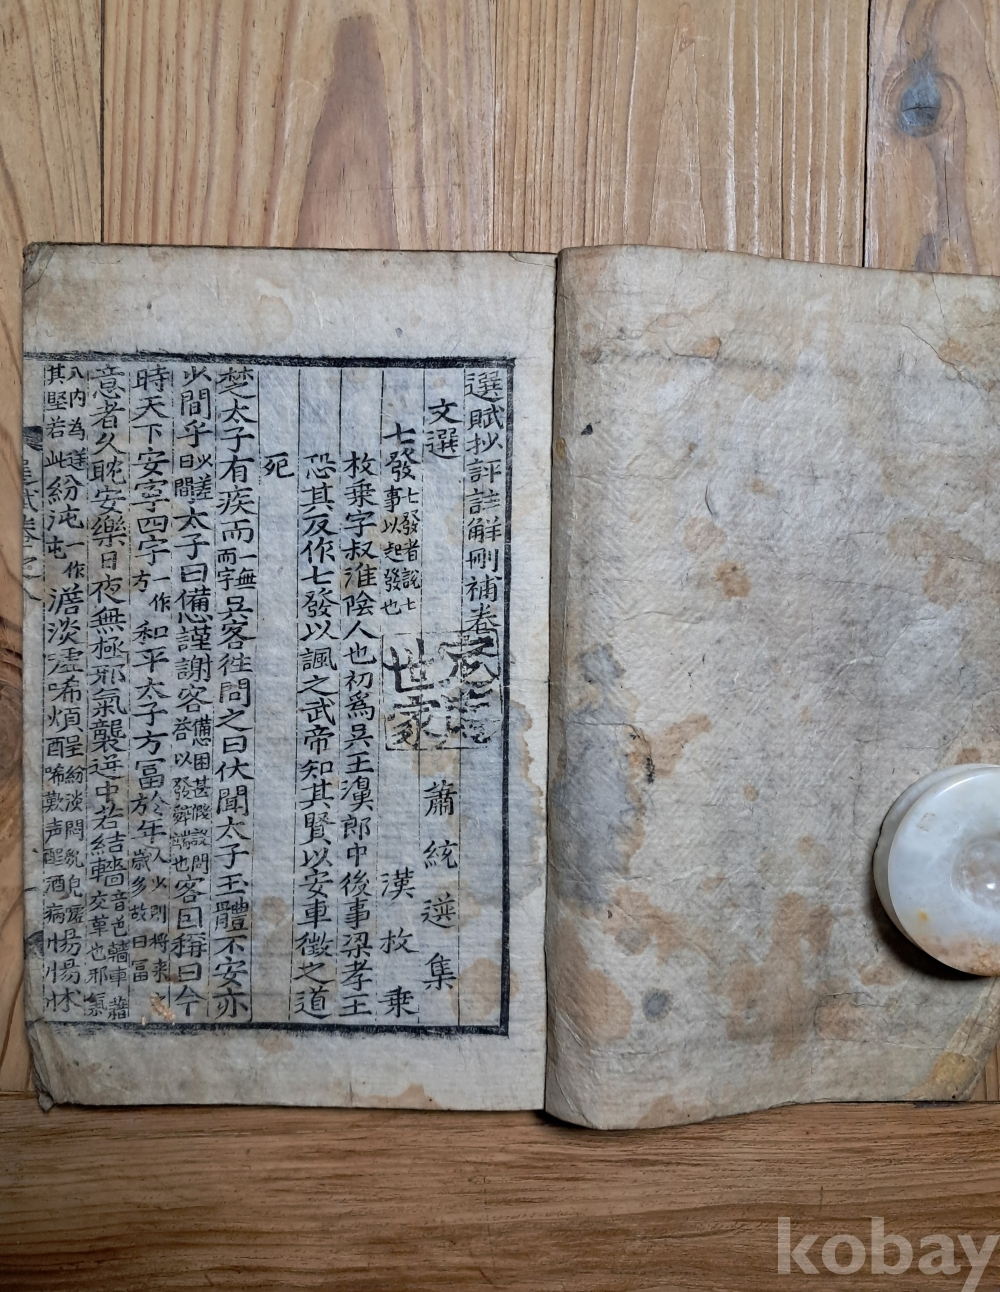 選賦抄評註解刪補卷
文選 蕭統選集
七發 七發者說七事以起發也 漢枚乗
枚乗字叔淮陰人也初爲吳王濞郎中後事梁孝王
恐其反作七發以諷之武帝知其賢以安車徵之道
死
楚太子有疾而一無而字吳客徃問之曰伏聞太子玉體不安亦
少間乎太子曰憊謹謝客客曰稱曰今
時天下安寧四字一作方和平太子方冨於年
意者久耽安樂日夜無極邪氣襲逆中若結轖
紛沌澹淡噓唏煩酲
kobay